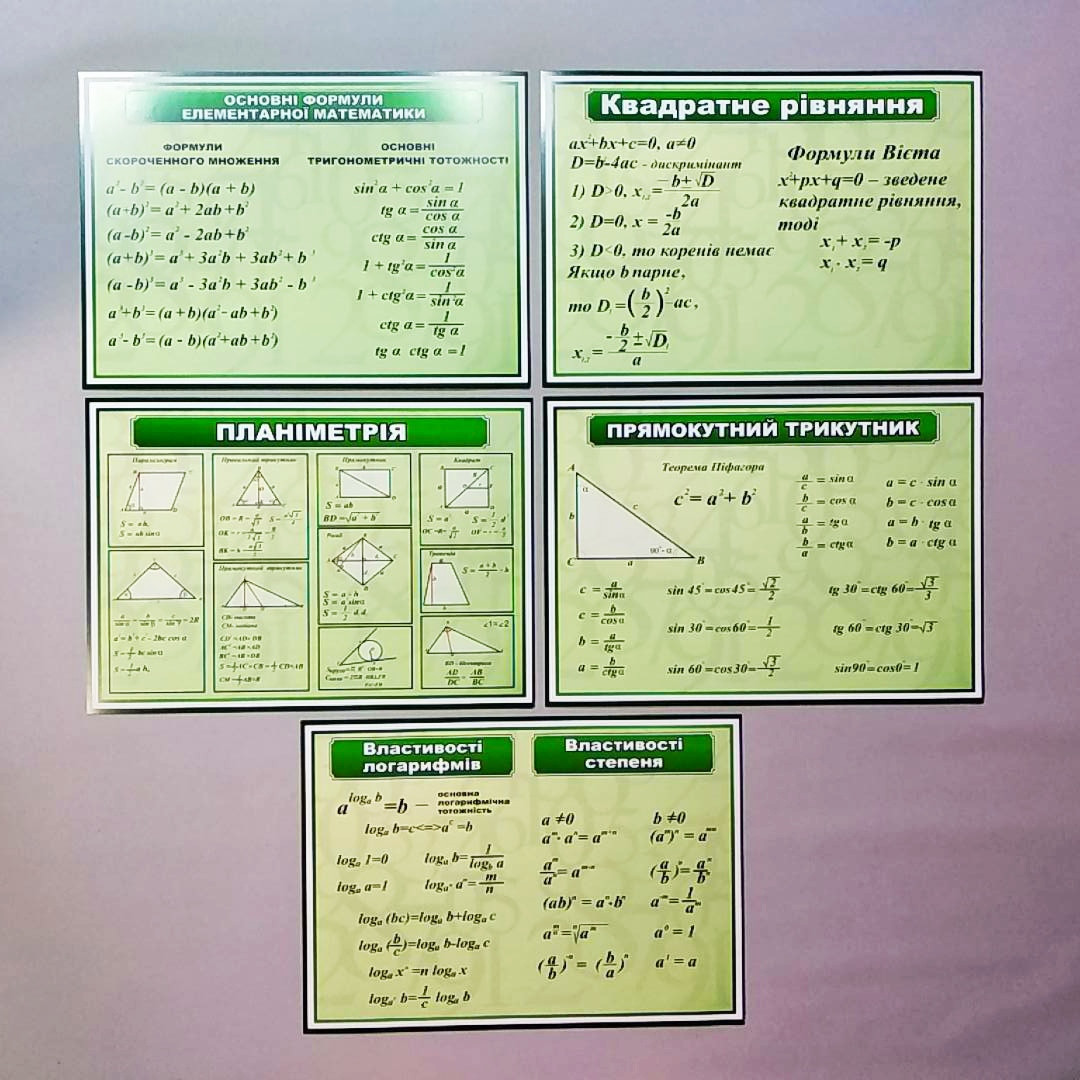 ОСНОВНІ ФОРМУЛИ
ЕЛЕМЕНТАРНОЇ МАТЕМАТИКИ
ФОРМУЛИ
СКОРОЧЕННОГО МНОЖЕННЯ
a²- b²= (a - b)(a + b)
(a+b)²= a²+ 2ab+b²
(a-b)²= a² - 2ab+b²
(a+b)³= a³+ 3a²b + 3ab²+ b³
(a-b)³= a³ - 3a²b + 3ab² - b³
a³+b³= (a+b)(a²- ab+b²)
a³- b³= (a - b)(a²+ab+b²)
ОСНОВНІ
ТРИГОНОМЕТРИЧНІ ТОТОЖНОСТІ
sin²α + cos²α = 1
tg α = sin α / cos α
ctg α = cos α / sin α
1 + tg²α = 1 / cos²α
1 + ctg²α = 1 / sin²α
ctg α = 1 / tg α
tg α ctg α =1
Квадратне рівняння
ax²+bx+c=0, a≠0
D=b²-4ac - дискримінант
1) D>0, x₁,₂= -b±√D / 2a
2) D=0, x = -b / 2a
3) D<0, то коренів немає
Якщо b парне,
то D₁=(b/2)²-ac,
x₁,₂= -b/2±√D₁ / a
Формули Вієта
x²+px+q=0 – зведене
квадратне рівняння,
тоді
x₁+ x₂= -p
x₁· x₂= q
ПЛАНІМЕТРІЯ
Паралелограм
S = ah,
S = ab sin α
Правильний трикутник
Прямокутник
S = ab
BD=√a²+b²
Квадрат
Ромб
S = a·h
S = a²sin α
Трапеція
S = a+b / 2 · h
a / sin α = b / sin β = c / sin γ = 2R
a²= b²+c² - 2bc cos α
S=½ bc sin α
S=½ a hₐ
Прямокутний трикутник
CD- висота
CM- медіана
CD²=AD·DB
AC²=AB·AD
BC²=AB·DB
S=½AC·CB=½CD·AB
CM=½AB=R
∠1=∠2
BD - бісектриса
AD / DC = AB / BC
ПРЯМОКУТНИЙ ТРИКУТНИК
Теорема Піфагора
c²= a²+ b²
A
α
b
c
C
a
90°- α
B
a/c = sin α
b/c = cos α
a/b = tg α
b/a = ctg α
a = c · sin α
b = c · cos α
a = b · tg α
b = a · ctg α
c = a / sin α
c = b / cos α
b = a / tg α
a = b / ctg α
sin 45°=cos 45°= √2/2
sin 30°=cos 60°= 1/2
sin 60°=cos 30°= √3/2
tg 30°=ctg 60°= √3/3
tg 60°=ctg 30°=√3
sin90°=cos0°= 1
Властивості
логарифмів
a^logₐ b =b — основна
логарифмічна
тотожність
logₐ b=c<=>aᶜ =b
logₐ 1=0
logₐ b= 1 / log_b a
logₐ a=1
log_aⁿ aᵐ= m/n
logₐ (bc)=logₐ b+logₐ c
logₐ (b/c)=logₐ b-logₐ c
logₐ xⁿ =n logₐ x
log_aᶜ b= 1/c logₐ b
Властивості
степеня
a ≠0
b ≠0
aᵐ· aⁿ= aᵐ⁺ⁿ
(aᵐ)ⁿ = aᵐⁿ
aᵐ/aⁿ= aᵐ⁻ⁿ
(a/b)ⁿ= aⁿ/bⁿ
(ab)ⁿ = aⁿ·bⁿ
a⁻ᵐ= 1/aᵐ
a^(m/n) =ⁿ√aᵐ
a⁰ = 1
(a/b)⁻ⁿ = (b/a)ⁿ
a¹ = a